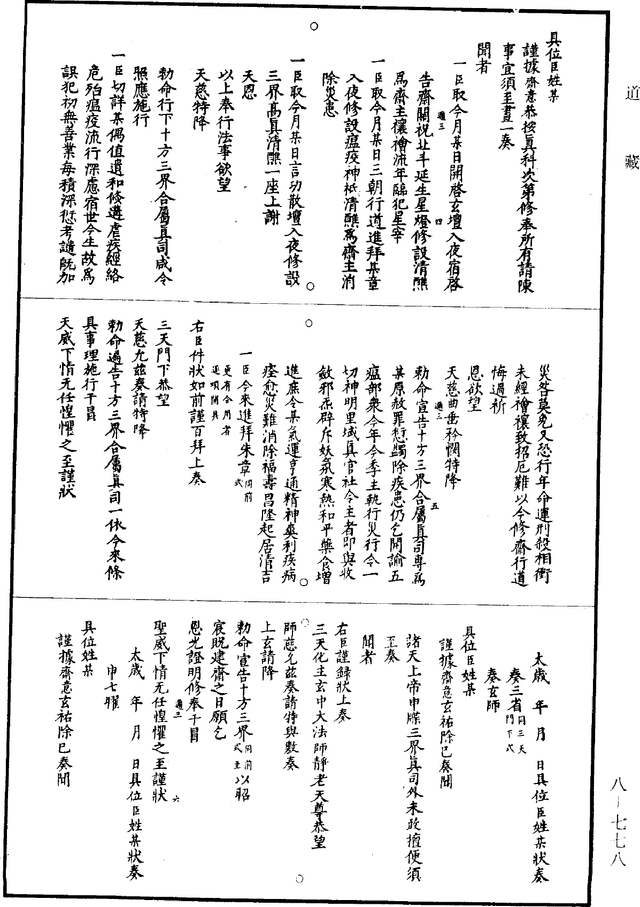 道藏
具位臣姓某
謹據齋意恭按真科次第修奉所有請陳
事宜須至畫一奏
聞者
一臣取今月某日開啓玄壇入夜宿啓
告齋關祝北斗延生星燈修設清醮
爲齋主禳襘流年臨犯星宰
一臣取今月某日三朝行道進拜某章
入夜修設瘟疫神祇清醮爲齋主消
除災患
一臣取今月某日言功散壇入夜修設
三界高真清醮一座上謝
天恩
以上奉行法事欲望
天慈特降
勑命行下十方三界合屬真司咸令
照應施行
一臣切詳某偶值違和倏遘虐疾經絡
危殆瘟疫流行深慮宿世今生故爲
誤犯初無善業每積深愆考讁旣加
災咎莫免又恐行年命運刑殺相衝
未經襘禳致招厄難以今修齋行道
悔過祈
恩欲望
天慈曲垂矜憫特降
勑命宣告十方三界合屬真司專爲
某原赦罪愆蠲除疾患仍乞開諭五
瘟部衆今年今季主執行災行令一
切神明里域真官社令主者即與收
斂邪炁辟斥妖氛寒熱和平藥食增
進庶令某氣運亨通精神爽利疾病
痊愈災難消除福壽昌隆起居清吉
一臣今來進拜朱章同前式
更有合用者逐項開具
右臣件狀如前謹百拜上奏
三天門下恭望
天慈允兹奏請特降
勑命遍告十方三界合屬真司一依今來條
具事理施行干冒
天威下情无任惶懼之至謹狀
太歲 年 月 日具位臣姓某狀奏
奏三省同三天門下式
奏玄師
具位臣姓某
謹據齋意玄祐除已奏聞
諸天上帝申牒三界真司外未敢擅便須
至奏
聞者
右臣謹錄狀上奏
三天化主玄中大法師靜老天尊恭望
師慈允兹奏請特與敷奏
上玄請降
勑命宣告十方三界同前式至以昭
寂貺建齋之日願乞
恩光證明修奉干冒
聖威下情无任惶懼之至謹狀
太歲 年 月 日具位臣姓某狀奏
申七曜
具位臣姓某
謹據齋意玄祐除已奏聞
八—七七八